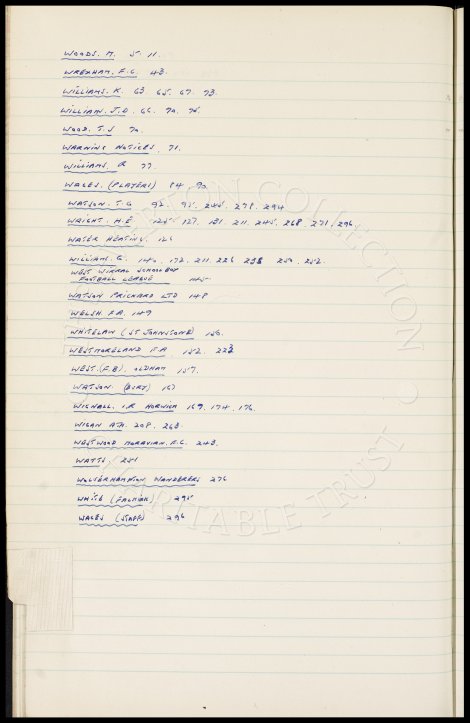 WOODS. M. 5. 11.
WREXHAM. F.C. 43.
WILLIAMS. K. 63 65. 67. 73.
WILLIAM. J.D. 66. 70. 75.
WOOD. T.S 70.
WARNING NOTICES. 71.
WILLIAMS. R 77.
WAGES. (PLAYERS) 84. 92.
WATSON. T.G 92. 95. 245. 278. 294
WRIGHT. H.E. 125. 127. 181. 211. 245. 268 271. 296.
WATER HEATING. 126
WILLIAMS. G. 140. 172. 211. 226 250. 252.
WEST WIRRAL SCHOOLBOY
FOOTBALL LEAGUE 145
WATSON PRICHARD LTD 148
WELSH. F.A. 149
WHITELAW (ST JOHNSTONE) 150.
WESTMORELAND F.A. 152.
WEST. (F.B). OLDHAM 157.
WATSON. (BURY) 161
WIGNALL. NORWICH 169. 174. 176.
WIGAN ATH. 208. 263.
WESTWOOD MORAVIAN. F.C. 243.
WATTS. 251
WOLVERHAMPTON WANDERERS 276
WHITE 295
WAGES (STAFF) 296
COLLECTION
CHARITABLE TRUST